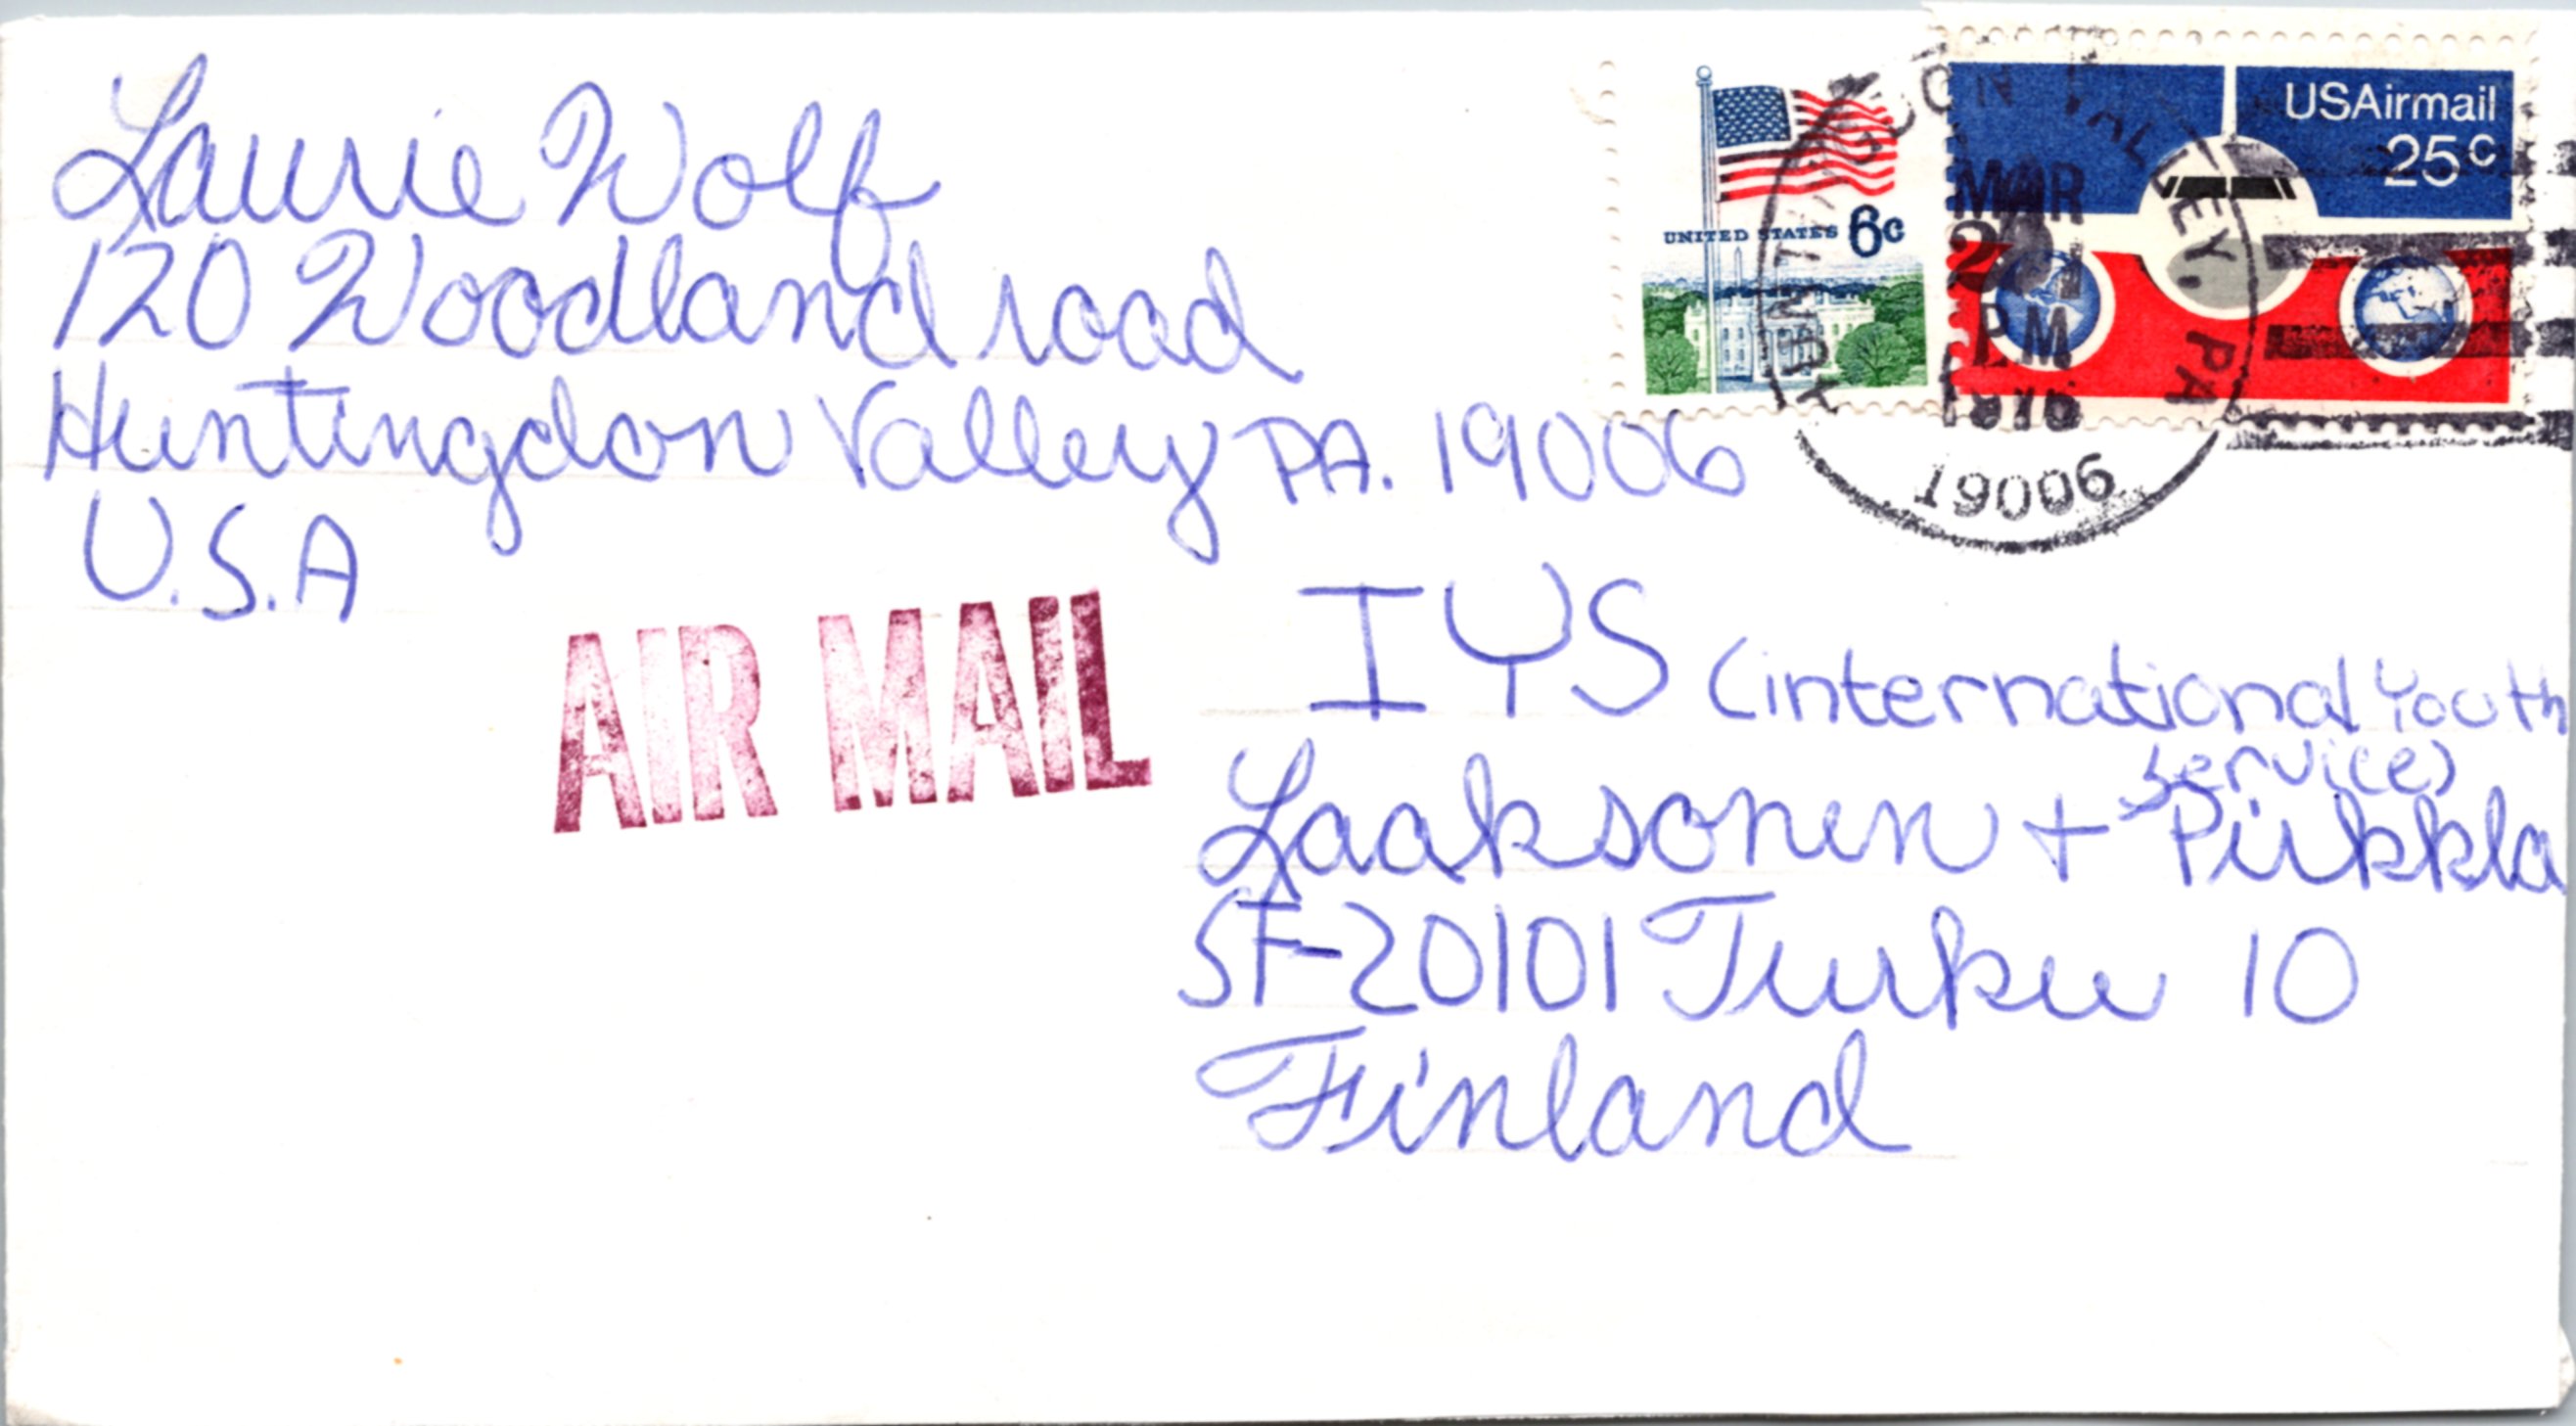 Laurie Wolf
120 Woodland road
Huntingdon Valley PA. 19006
U.S.A
UNITED STATES 6c
USAirmail
25c
HUNTINGDON VALLEY, PA
MAR
PM
1976
19006
AIR MAIL
IYS (international Youth
service)
Laaksonen + Pirkkla
SF-20101 Turku 10
Finland